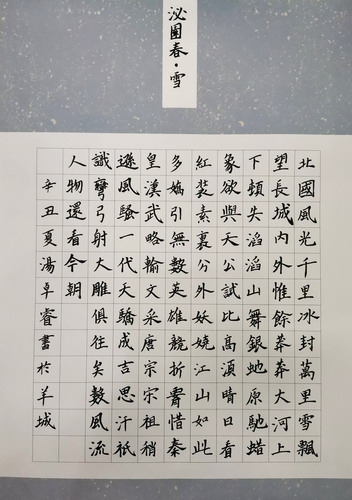 沁園春·雪
北國風光千里冰封萬里雪飄
望長城内外惟餘莽莽大河上
下頓失滔滔山舞銀虵原馳蜡
象欲與天公試比高湏晴日看
紅裝素裹分外妖嬈江山如此
多嬌引無數英雄競折腰惜秦
皇漢武略輸文采唐宗宋祖稍
遜風騷一代天驕成吉思汗祇
識彎弓射大雕俱往矣數風流
人物還看今朝
辛丑夏湯卓睿書於羊城